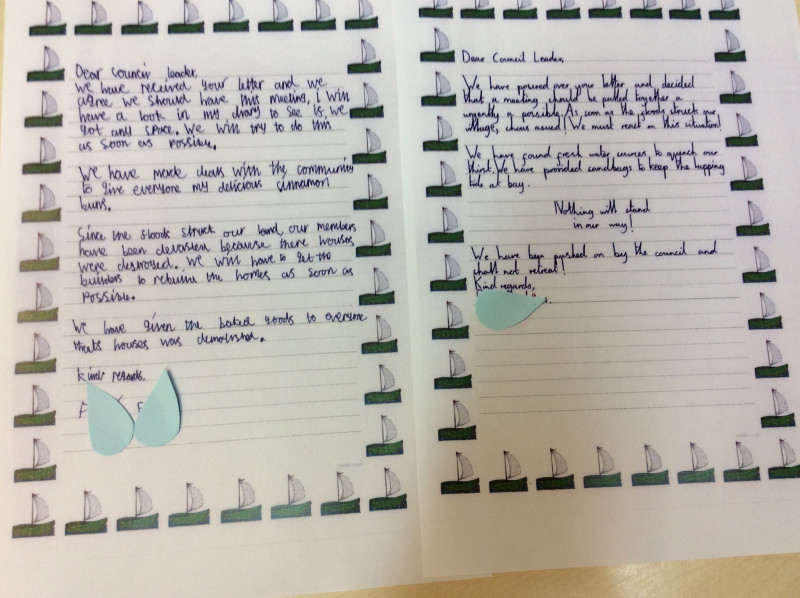 Dear Council leader,
We have received your letter and we
agree we should have this meeting. I will
have a look in my diary to see is we
got any space. We will try to do this
as soon as possible.
We have made deals with the community
to give everyone my delicious cinnamon
buns.
Since the floods struck our land, our members
have been because there houses
were destroyed. We will have to get the
builders to the homes as soon as
possible.
We have given the baked goods to everyone
thats houses was demolished.
kind regards,
Dear Council Leader,
We have poured over your letter and decided
that a meeting should be pulled together a
urgently a possible. As soon as the floods struck our
village, chaos We must react on this situation!
We have found fresh water sources to quench our
thirst. We have provided sandbags to keep the
tide at bay.
Nothing will stand
in our way!
We have been pushed on by the council and
shall not retreat!
Kind regards,